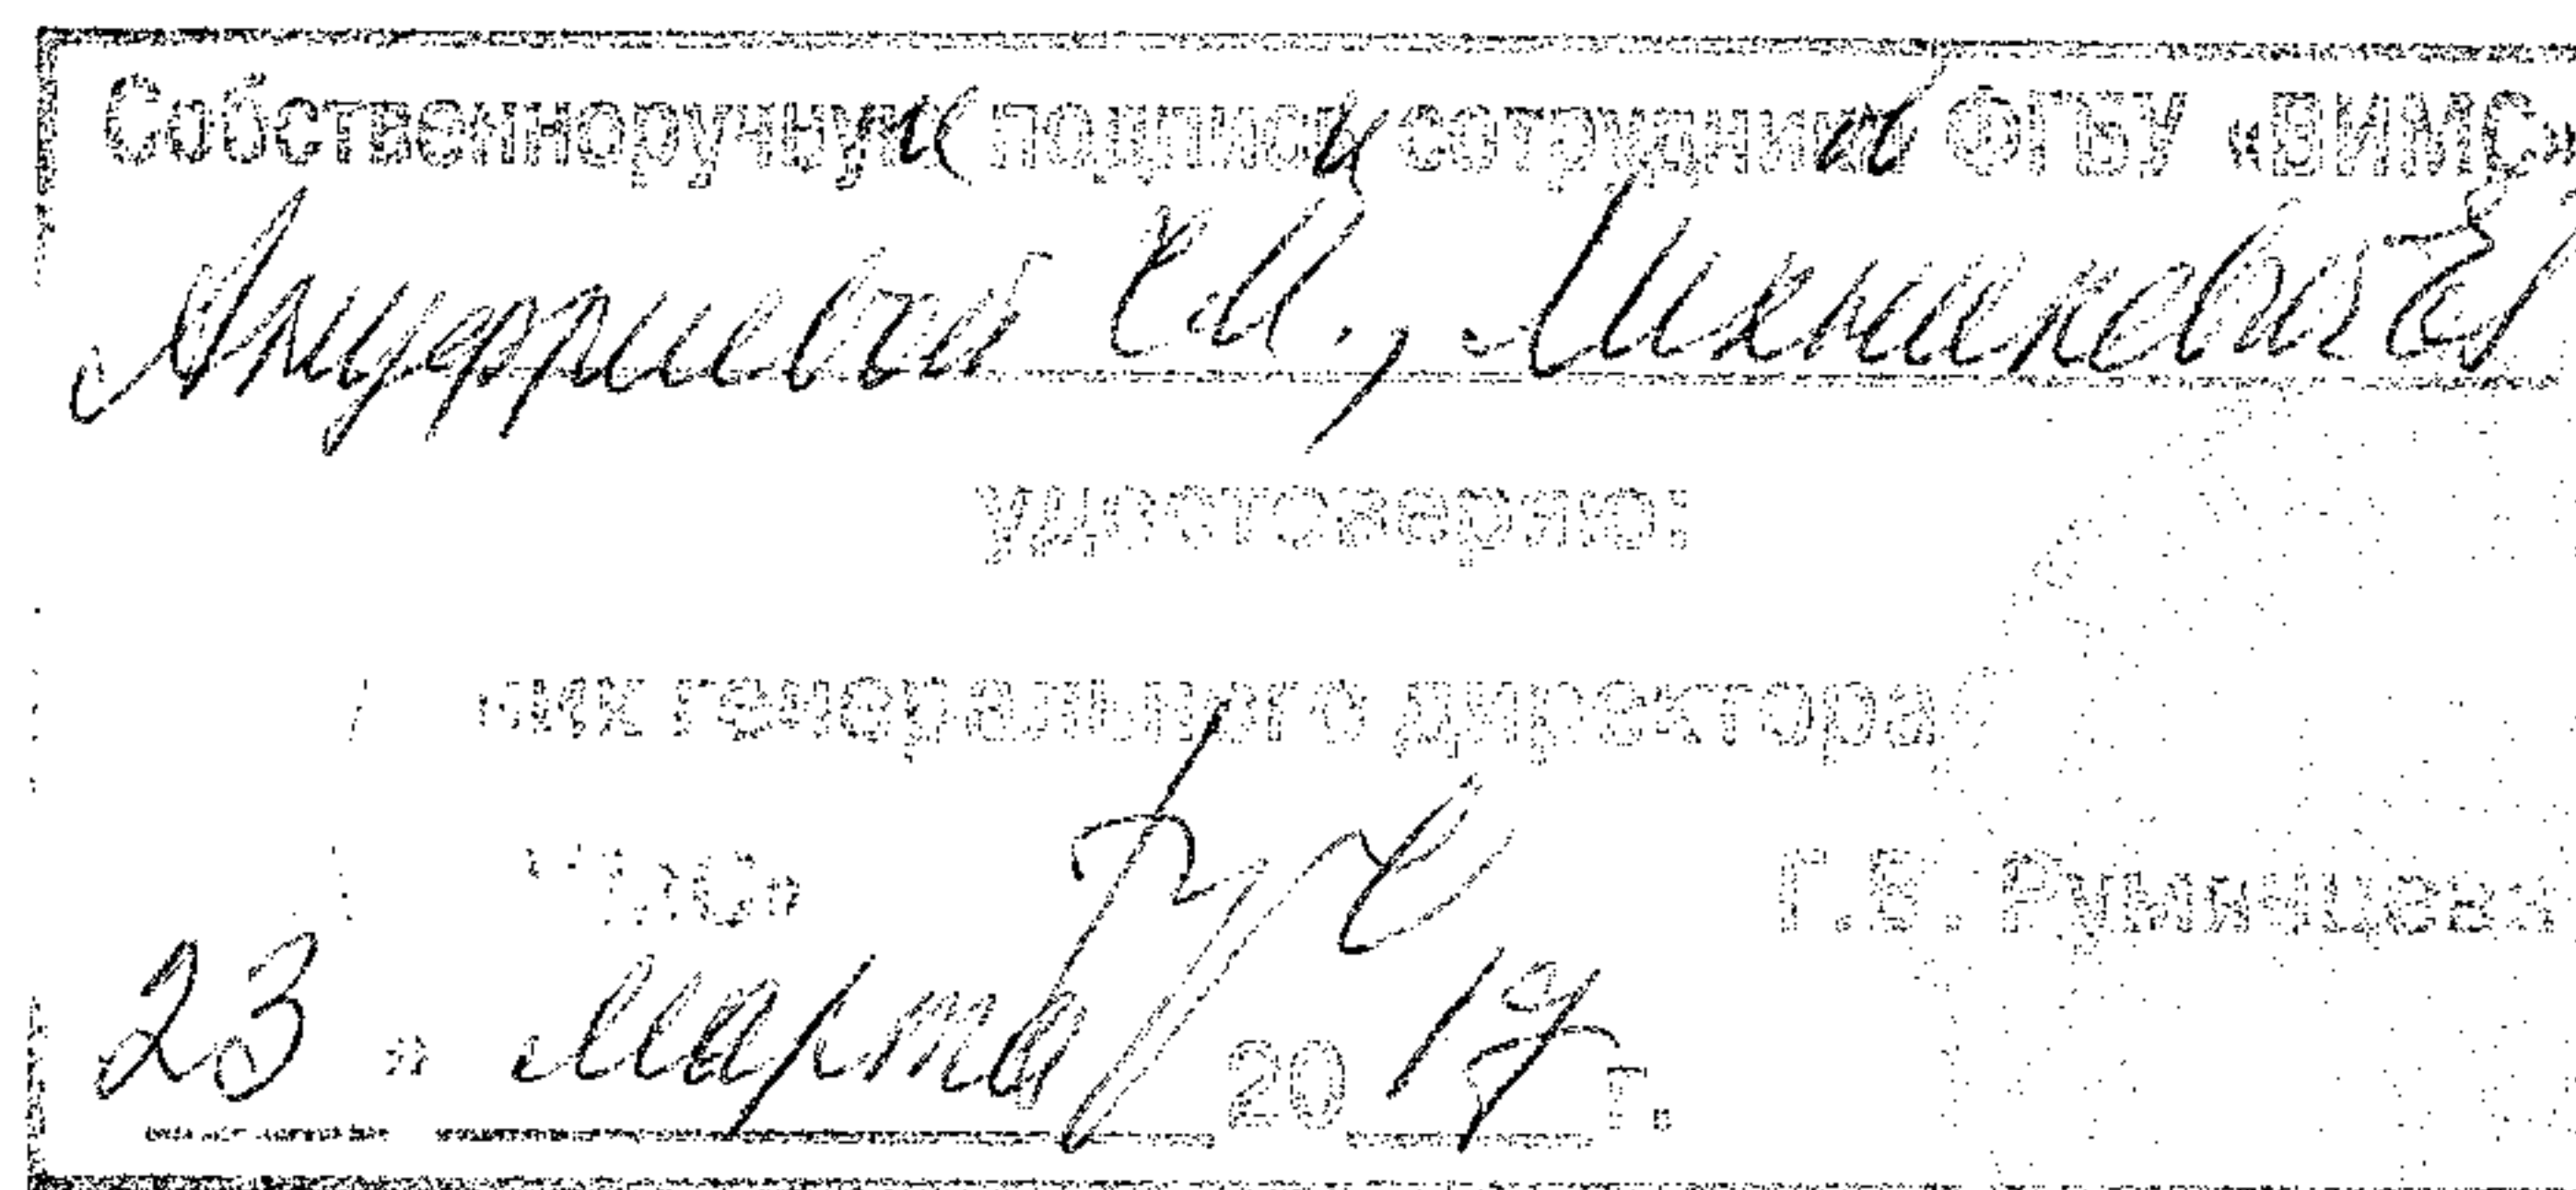 Собственноручные подписи сотрудников ФГБУ «ВИМС»
Ануфриевой С.И., Лихникевич Е.
удостоверяю:
ник генерального директора
ИМС» Г.В. Румянцева
23 » марта 2017 г.